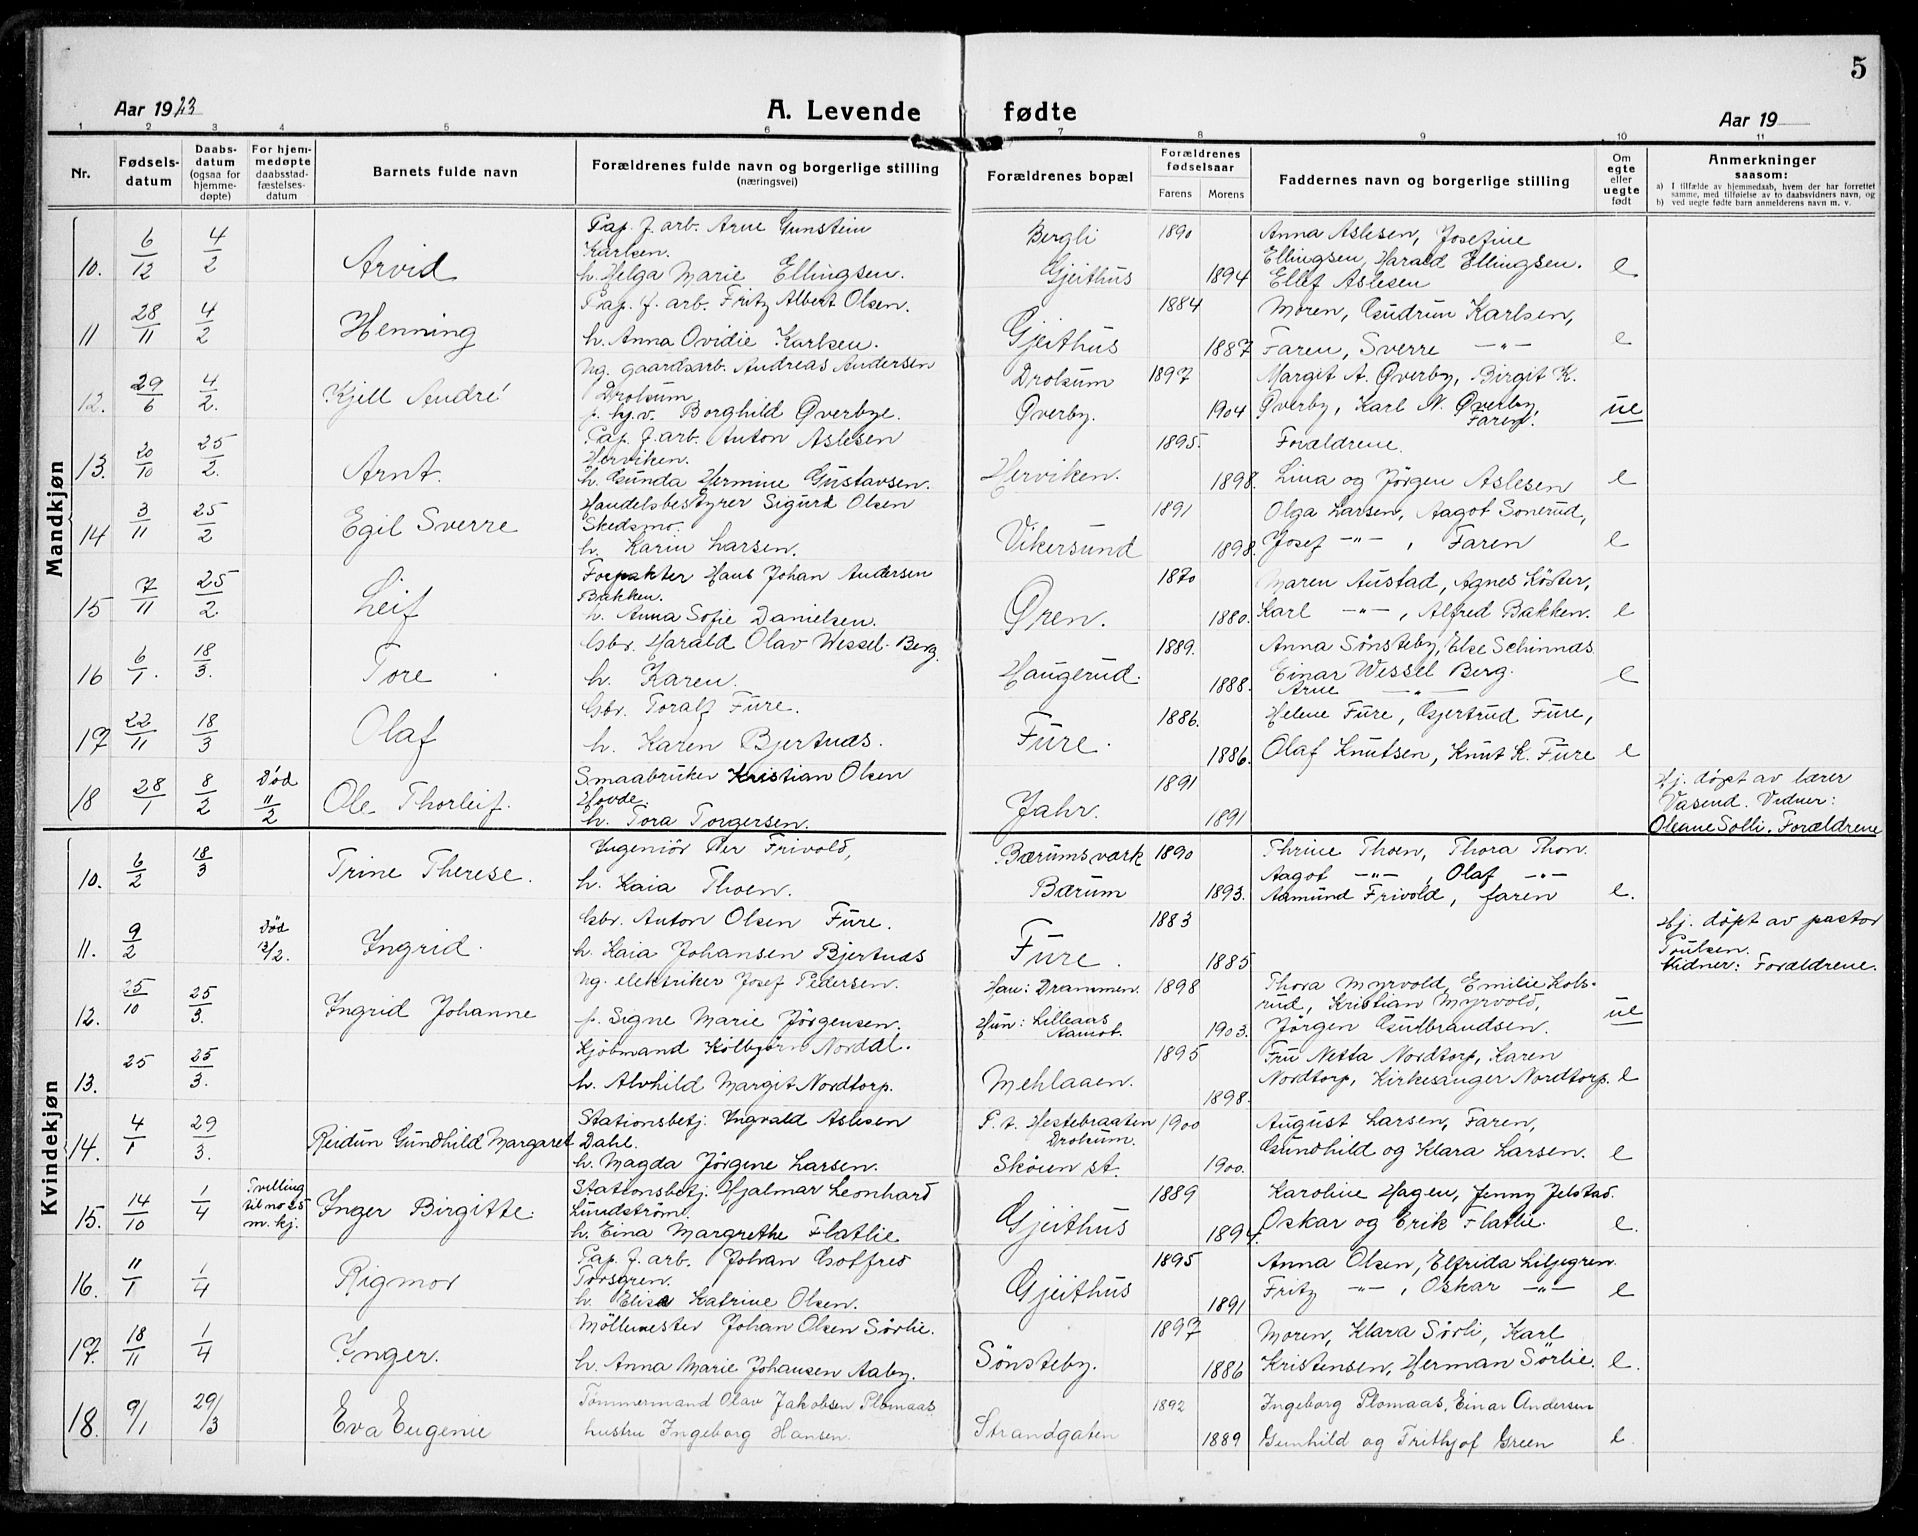 5
Aar 1923
A. Levende fødte
Aar 19
1 2 3 4 5 6 7 8 9 10 11
Nr.
Fødsels-
datum
Daabs-
datum
(ogsaa for
hjemme-
døpte)
For hjem-
medøpte
daabsstad-
fæstelses-
datum
Barnets fulde navn
Forældrenes fulde navn og borgerlige stilling
(næringsvei)
Forældrenes bopæl
Forældrenes
fødselsaar
Farens Morens
Faddernes navn og borgerlige stilling
Om
egte
eller
uegte
født
Anmerkninger
saasom:
a) I tilfælde av hjemmedaab, hvem der har forrettet
samme, med tilføielse av to daabsvidners navn, og
b) ved uegte fødte barn anmelderens navn m. v.
Mandkjøn
10. 6/12 4/2 Arvid
Pap. f. arb. Arne Gunstein
Karlsen.
h. Helga Marie Ellingsen.
Bergli
Gjeithus
1890 1894
Anna Aslesen, Josefine
Ellingsen, Harald Ellingsen.
Ellef Aslesen
e
11 28/11 4/2 Henning
Pap. f. arb. Fritz Albert Olsen.
h. Anna Ovidie Karlsen.
Gjeithus
1884 1887
Moren, Gudrun Karlsen,
Faren, Sverre -"-
e
12. 29/6 4/2. Kjell André
Ug. gaardsarb. Andreas Andersen
Drolsum
p. hj.v. Borghild Øverbye.
Drolsum
Øverby.
1897 1904
Margit A. Øverby, Birgit K.
Øverby, Karl N. Øverby,
Faren.
ue
13. 20/10 25/2. Arnt.
Pap. f. arb. Anton Aslesen
Herviken.
h. Gunda Hermine Gustavsen.
Herviken.
1895. 1898.
Forældrene.
Lina og Jørgen Aslesen
e
14 3/11 25/2 Egil Sverre
Handelsbestyrer Sigurd Olsen
Skedsmo.
h. Karin Larsen.
Vikersund
1891 1898.
Olga Larsen, Aagot Sonerud,
Josef -"-, Faren
e
15 7/11 25/2. Leif
Forpakter Hans Johan Andersen
Bakken.
h. Anna Sofie Danielsen.
Øren.
1870 1880.
Maren Austad, Agnes Köster,
Karl -"-, Alfred Bakken.
e
16 6/1. 18/3. Tore
Gbr. Harald Olav Wessel-Berg.
h. Karen.
Haugerud.
1889. 1888.
Anna Sønsteby, Else Schinnas
Einar Wessel Berg.
Arne -"-
e
17 22/11 18/3 Olaf
Gbr. Toralf Fure.
h. Karen Bjertnæs.
Fure.
1886. 1886.
Helene Fure, Gjertrud Fure,
Olaf Knutsen, Knut K. Fure
e
18 28/1 8/2 Død
11/2
Ole Thorleif.
Smaabruker Kristian Olsen
Hovde.
h. Tora Torgersen.
Jahr.
1891 1891
Hj. døpt av lærer
Vasend. Vidner:
Oleane Solli. Forældrene
Kvindekjøn
10. 6/2 18/3 Trine Therese.
Ingeniör Per Frivold,
h. Kaia Thoen.
Bærumsværk
Bærum
1890 1893.
Thrine Thoen, Thora Thon.
Aagot -"-, Olaf -"-
Aamund Frivold, faren
e.
11. 9/2 Død
13/2. Ingrid.
Gbr. Anton Olsen Fure.
h. Kaia Johansen Bjertnæs
Fure.
1883 1885
Hj. døpt av pastor
Poulsen.
Vidner: Forældrene.
12. 25/10 25/3. Ingrid Johanne
Ug. elektriker Josef Pedersen.
p. Signe Marie Jørgensen.
Han: Drammen.
Hun: Lilleaas
Aamot.
1898 1903.
Thora Myrvold, Emilie Kols-
rud, Kristian Myrvold,
Jørgen Gulbrandsen.
ue
13. 25 25/3.
Kjöbmand Kolbjørn Norddl.
h. Alvhild Margit Nordtorp.
Mehlaaen.
1895 1898.
Fru Netta Nordtorp, Karen
Nordtorp, Kirkesanger Nordtorp.
e
14. 4/1 29/3. Reidun Gundhild Margaret
Stationsbetj. Ingvald Aslesen
Dahl.
h. Magda Jörgine Larsen.
P. t. Hestebraaten
Drolsum.
Skøien st.
1900 1900.
August Larsen, Faren,
Gundhild og Klara Larsen.
e
15. 14/10 1/4 Tvilling
til no 25
m. kj.
Inger Birgitte.
Stationsbetj. Hjalmar Leonhard
Lundström.
h. Eina Margrethe Flatlie
Gjeithus
1889 1894.
Karoline Hagen, Jenny Jelstad.
Oskar og Erik Flatlie.
e.
16. 11/1 1/4 Rigmor
Pap. f. arb. Johan Gotfred
Torsgren.
h. Elise Katrine Olsen.
Gjeithus
1895 1891
Anna Olsen, Elfrida Liljegren.
Fritz -"-, Oskar -"-
e
17. 18/11 1/4 Inger.
Möllemester Johan Olsen Sørlie.
h. Anna Marie Johansen Aaby.
Sønsteby.
1897 1886
Moren, Klara Sørli, Karl
Kristensen, Herman Sørlie.
e.
18. 9/1 29/3 Eva Eugenie
Tømmermand Olav Jakobsen Plomaas
hustru Ingeborg Hansen.
Strandgaten
1892 1889
Ingeborg Plomaas, Einar Andersen
Gunhild og Frithjof Green
e.